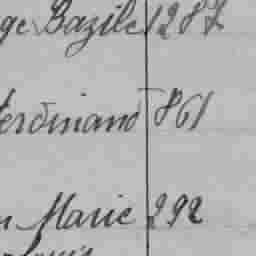 ge Bazile 1287
Ferdinand 861
Marie 292